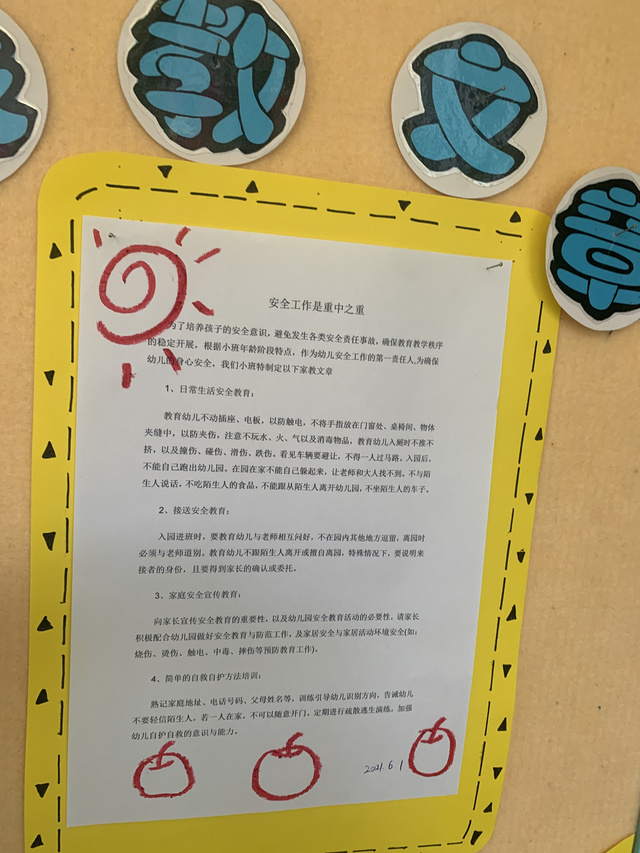 教
文
章
安全工作是重中之重
为了培养孩子的安全意识，避免发生各类安全责任事故，确保教育教学秩序
的稳定开展，根据小班年龄阶段特点，作为幼儿安全工作的第一责任人,为确保
幼儿的身心安全，我们小班特制定以下家教文章
1、日常生活安全教育：
教育幼儿不动插座、电板，以防触电，不将手指放在门窗处、桌椅间、物体
夹缝中，以防夹伤，注意不玩水、火、气以及消毒物品，教育幼儿入厕时不推不
挤，以及撞伤、碰伤、滑伤、跌伤。看见车辆要避让，不得一人过马路。入园后，
不能自己跑出幼儿园。在园在家不能自己躲起来，让老师和大人找不到。不与陌
生人说话，不吃陌生人的食品，不能跟从陌生人离开幼儿园，不坐陌生人的车子。
2、接送安全教育：
入园进班时，要教育幼儿与老师相互问好，不在园内其他地方逗留，离园时
必须与老师道别。教育幼儿不跟陌生人离开或擅自离园，特殊情况下，要说明来
接者的身份，且要得到家长的确认或委托。
3、家庭安全宣传教育：
向家长宣传安全教育的重要性，以及幼儿园安全教育活动的必要性，请家长
积极配合幼儿园做好安全教育与防范工作，及家居安全与家居活动环境安全(如：
烧伤、烫伤、触电、中毒、摔伤等预防教育工作)。
4、简单的自救自护方法培训：
熟记家庭地址、电话号码、父母姓名等，训练引导幼儿识别方向，告诫幼儿
不要轻信陌生人，若一人在家，不可以随意开门。定期进行疏散逃生演练，加强
幼儿自护自救的意识与能力。
2021.6.1